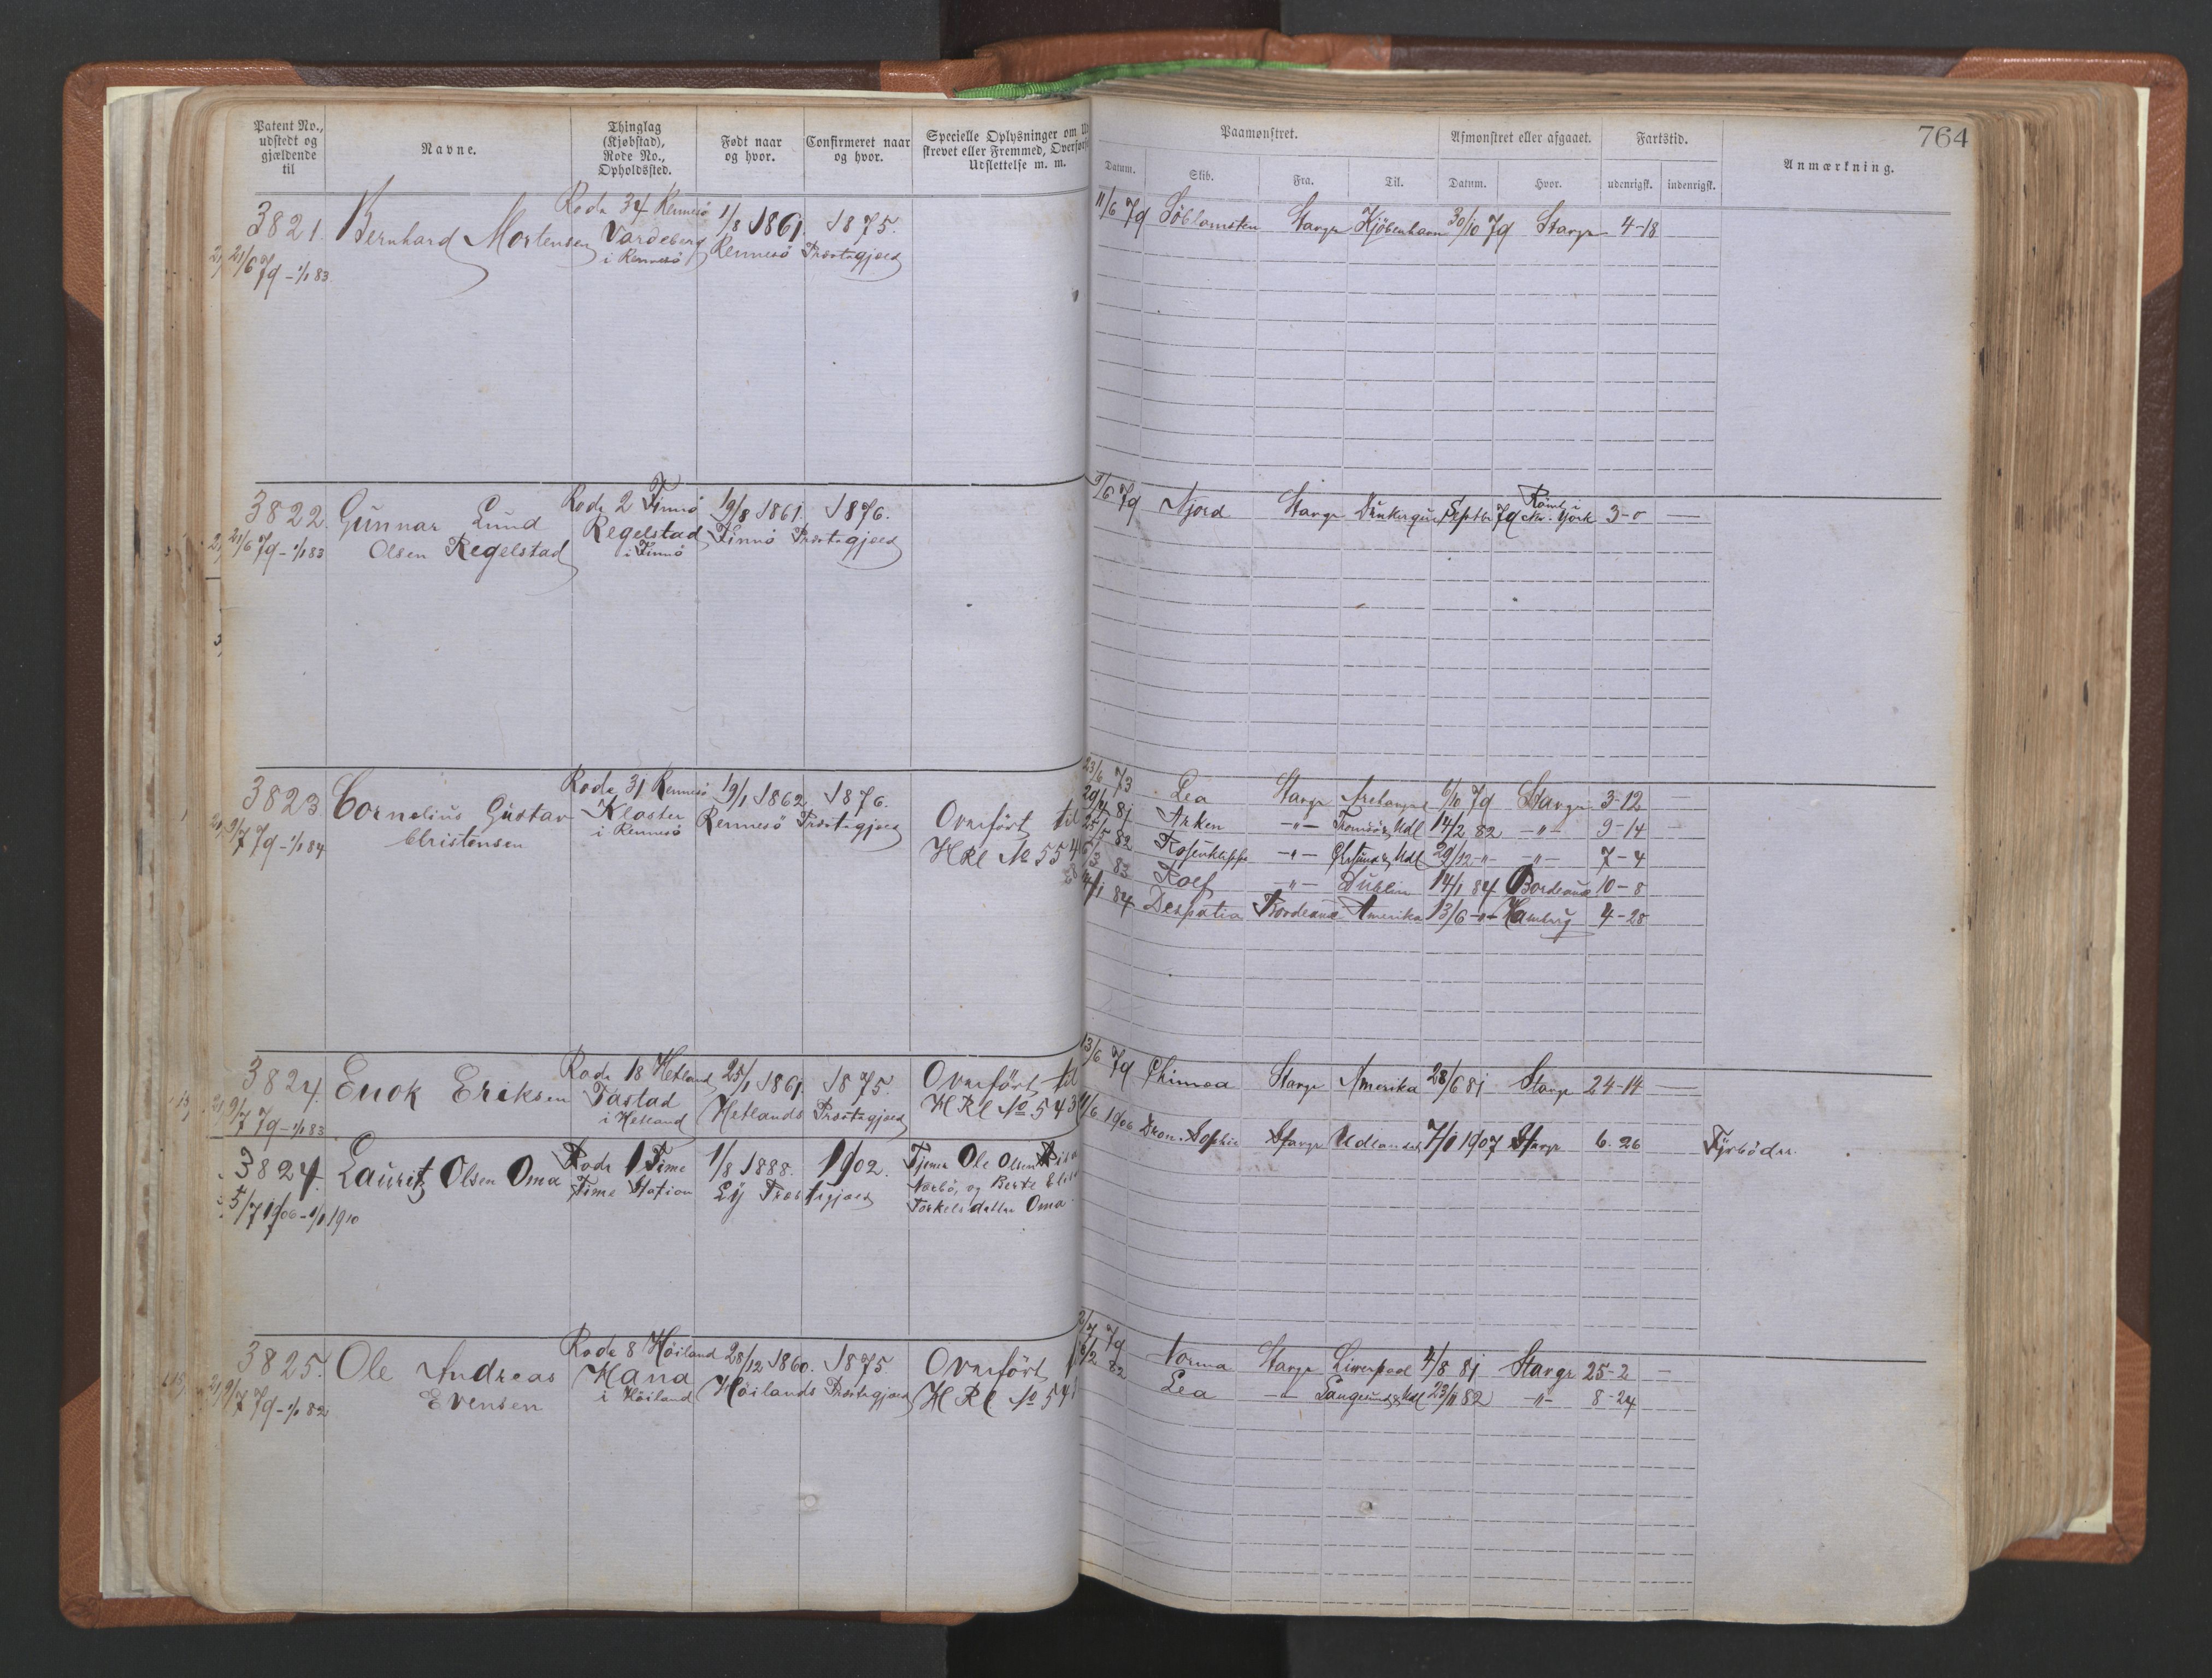 Patent No., udstedt og gjældende til
Navne.
Thinglag (Kjøbstad), Rode No., Opholdssted.
Født naar og hvor.
Confirmeret naar og hvor.
Specielle Oplysninger om
skrevet eller Fremmed,
Udslettelse m. m.
Paamønstret.
Afmønstret eller afgaaet.
Fartstid.
764
Datum.
Skib.
Fra.
Til.
Datum.
Hvor.
udenrigsk.
indenrigsk.
Anmærkning.
3821.
21/6 79 - 1/1 83
Bernhard Mortensen
Rode 34 Rennesö
Vardeberg
i Rennesö
1/8 1861.
Rennesö
1875.
Præstegjæld
11/6 79 Stavgr Kjöbenhavn 30/10 79 Stavgr 4-18
3822.
21/6 79 - 1/1 83
Gunnar Lund
Olsen Regelstad
Rode 2 Finnö
Regelstad
i Finnö
19/8 1861.
Finnö
1876.
Præstegjæld
9/6 79 Njord Stavgr Dünkerque Septbr 79 Römt i N. York 3-0 —
3823.
9/7 79 - 1/1 84
Cornelius Gustav
Christensen
Rode 31 Rennesö
Kloster
i Rennesö
19/1 1862.
Rennesö
1876.
Præstegjæld
Overfört til
HRl No 554
Lea Stavgr 6/10 79 Stavgr 3-12 —
81 Arken -"- Tromsö & Udl 14/2 82 -"- 9-14 —
25/5 82 -"- & Udl 29/12 -"- -"- 7-4
83 Rolf -"- Dublin 14/1 84 Bordeaux 10-8
84 Despatia Bordeaux Amerika 13/6 -"- Hamburg 4-28
3824.
9/7 79 - 1/1 83
Enok Eriksen
Rode 18 Hetland
Tastad
i Hetland
25/1 1861.
Hetlands
1875.
Præstegjæld
Overfört til
HRl No 543
13/6 79 Chimæa Stavgr Amerika 28/6 81 Stavgr 24-14 —
3824.
5/7 1906 - 1/1 1910
Lauritz Olsen Oma
Rode 1 Time
Time Station
1/8 1888.
Ly Præstegjæld
1902.
Ole Olsen
Nærbö, og Berte
Torkelsdatter Oma
1906 Dron. Sophie Stavgr Udlandet 1907 Stavgr 6.26 Fyrböder.
3825.
9/7 79 - 1/1 82
Ole Andreas
Evensen
Rode 8 Höiland
Hana
i Höiland
28/12 1860.
Höilands
1875
Præstegjæld
Overfört
HRl No 541
79 Norma Stavgr Liverpool 4/8 81 Stavgr 25-2 —
82 Lea -"- Langesund & Udl 23/11 82 -"- 8-24